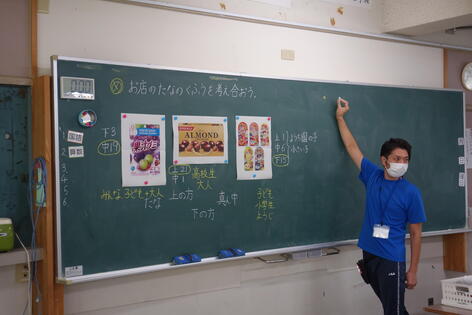 め お店のたなのくふうを考え合おう。
国語
算数
1
2
3
4
5
6
下3
中19
ALMOND
上21
中1
高校生
大人
上1
中6
下15
ようち園の子
小さい子
みんな 子ども+大人
たな
上の方
真ん中
下の方
子ども
小学生
ようじ